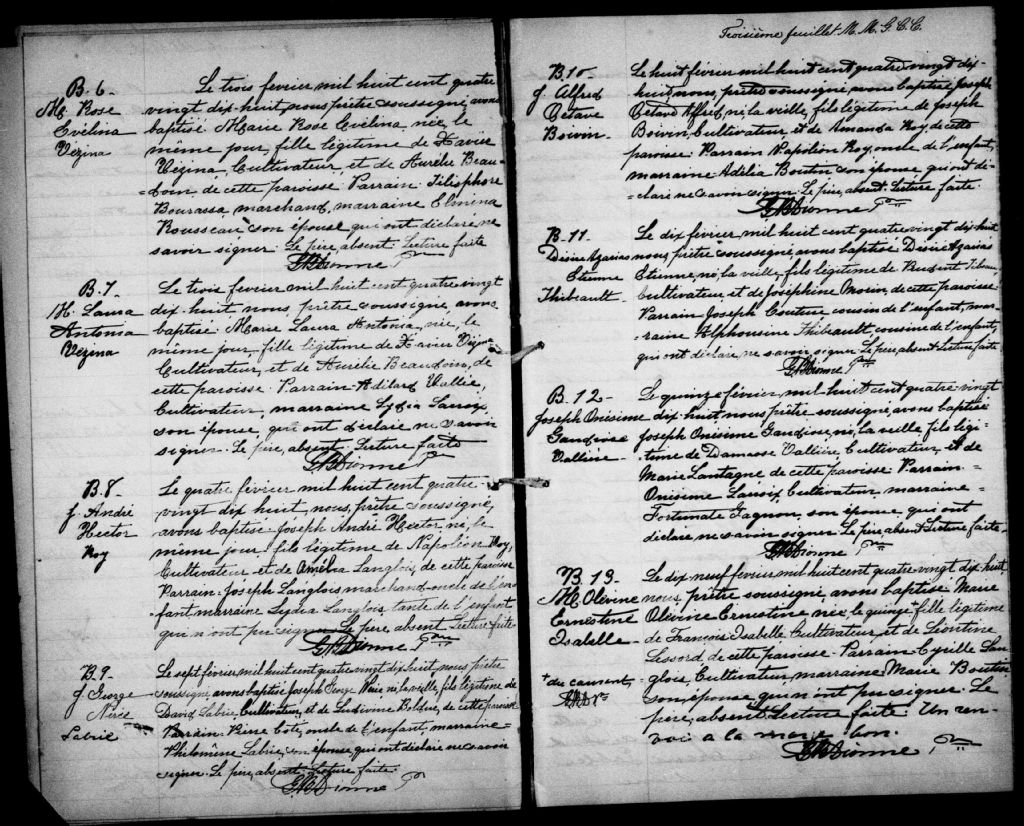 B. 6-
M. Rose
Evelina
Vézina
Le trois fevrier mil huit cent quatre
vingt dix-huit, nous prêtre soussigné, avons
baptisé Marie Rose Evelina, née, le
même jour, fille légitime de Xavier
Vézina, Cultivateur, et de Aurélie Beau-
=doin de cette paroisse Parrain Télesphore
Bourassa marchand, marraine Elmina
Rousseau son épouse qui ont déclaré ne
savoir signer. Le père absent. Lecture faite
Dionne Ptre
B. 7-
M. Laura
Antonia
Vézina
Le trois fevrier mil huit cent quatre vingt
dix huit nous, prêtre soussigné, avons
baptisé Marie Laura Antonia, née, le
même jour, fille légitime de Xavier Vézina
Cultivateur, et de Aurélie Beaudoin, de
cette paroisse. Parrain Adélard Vallée,
Cultivateur, marraine Lydia Lacroix,
son épouse, qui ont déclaré ne savoir
signer. Le père, absent, Lecture faite
Dionne Ptre
B. 8-
J. André
Hector
Roy
Le quatre février mil huit cent quatre-
vingt dix huit, nous, prêtre soussigné,
avons baptisé Joseph André Hector né, le
même jour, fils légitime de Napoléon Roy,
Cultivateur et de Amélia Langlois, de cette paroisse
Parrain Joseph Langlois marchand, oncle de l'en-
fant, marraine Lydia Langlois, tante de l'enfant,
qui n'ont pu signer Le père, absent, Lecture faite
Dionne Ptre
B. 9-
J. George
Nirée
Labrie
Le sept février mil huit cent quatre vingt dix huit, nous prêtre
soussigné avons baptisé Joseph George Nirée né la veille, fils légitime de
David Labrie, Cultivateur, et de Ludivine Bolduc, de cette paroisse
Parrain Pierre Coté, oncle de l'enfant, marraine=
Philomène Labrie, son épouse, qui ont déclaré ne savoir
signer. Le père, absent, Lecture faite.
Dionne Ptre
Troisième feuillet M. M. G. C. C.
B. 10-
J. Alfred
Octave
Boivin
Le huit février mil huit cent quatre vingt dix-
huit, nous, prêtre soussigné, avons baptisé Joseph
Octave Alfred, né, la veille, fils légitime de Joseph
Boivin, Cultivateur, et de Amanda Roy, de cette
paroisse. Parrain Napoléon Roy, oncle de l'enfant,
marraine Adélia Boutin son épouse qui ont dé-
=claré ne savoir signer. Le père, absent. Lecture faite.
Dionne Ptre
B. 11-
Désiré Azarias
Etienne
Thibeault
Le dix février mil huit cent quatre vingt dix huit
nous, prêtre soussigné, avons baptisé Désiré Azarias
Etienne, né, la veille, fils légitime de Prudent Thibeault,
Cultivateur, et de Joséphine Morin, de cette paroisse
Parrain Joseph Couture cousin de l'enfant, mar-
=raine Alphonsine Thibeault cousine de l'enfant,
qui ont déclaré, ne savoir signer. Le père, absent Lecture faite
Dionne Ptre
B. 12-
Joseph Onésime
Gaudiose
Vallière
Le quinze février mil huit cent quatre-vingt
dix-huit, nous prêtre soussigné, avons baptisé
Joseph Onésime Gaudiose, né, la veille fils légi-
time de Damasse Vallière Cultivateur, et de
Marie Lantagne de cette paroisse Parrain-
Onésime Lacroix Cultivateur, marraine=
Fortunate Gagnon, son épouse, qui ont
déclaré ne savoir signer. Le père, absent Lecture faite
Dionne Ptre
B. 13-
M. Olévine
Ernestine
Isabelle
Le dix neuf fevrier mil huit cent quatre vingt dix huit,
nous, prêtre soussigné, avons baptisé Marie
Olévine Ernestine née, le quinze+ fille légitime
de François Isabelle Cultivateur et de Léontine
Lessard de cette paroisse - Parrain Cyrille Lan-
glois, Cultivateur, marraine Marie Boutin
son épouse, qui n'ont pu signer. Le
père, absent. Lecture faite. Un ren-
voi a la marge bon.
Dionne Ptre
+ du courant,